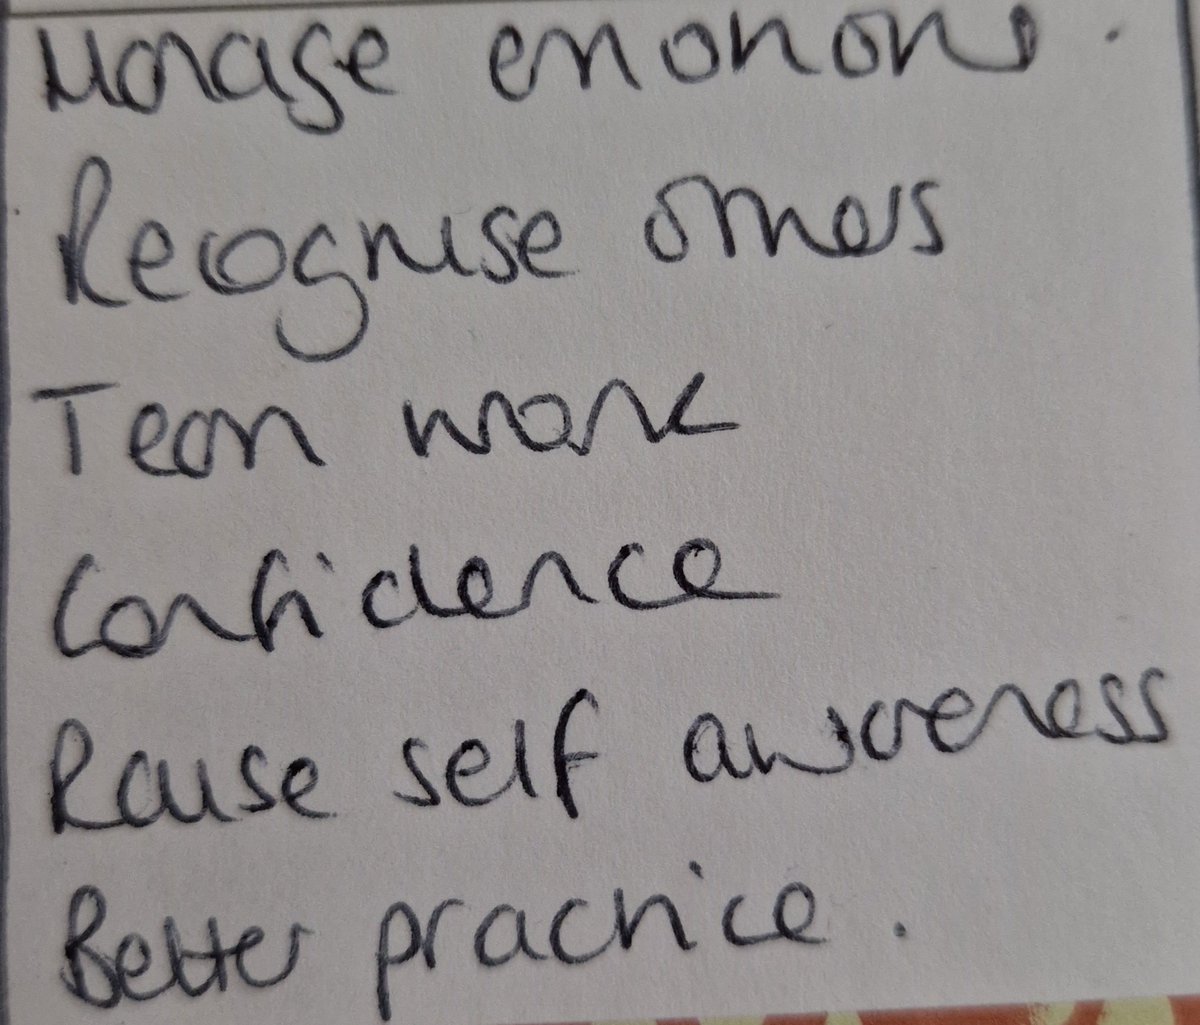 Manage emotions.
Recognise others
Team work
Confidence
Raise self awareness
Better practice.